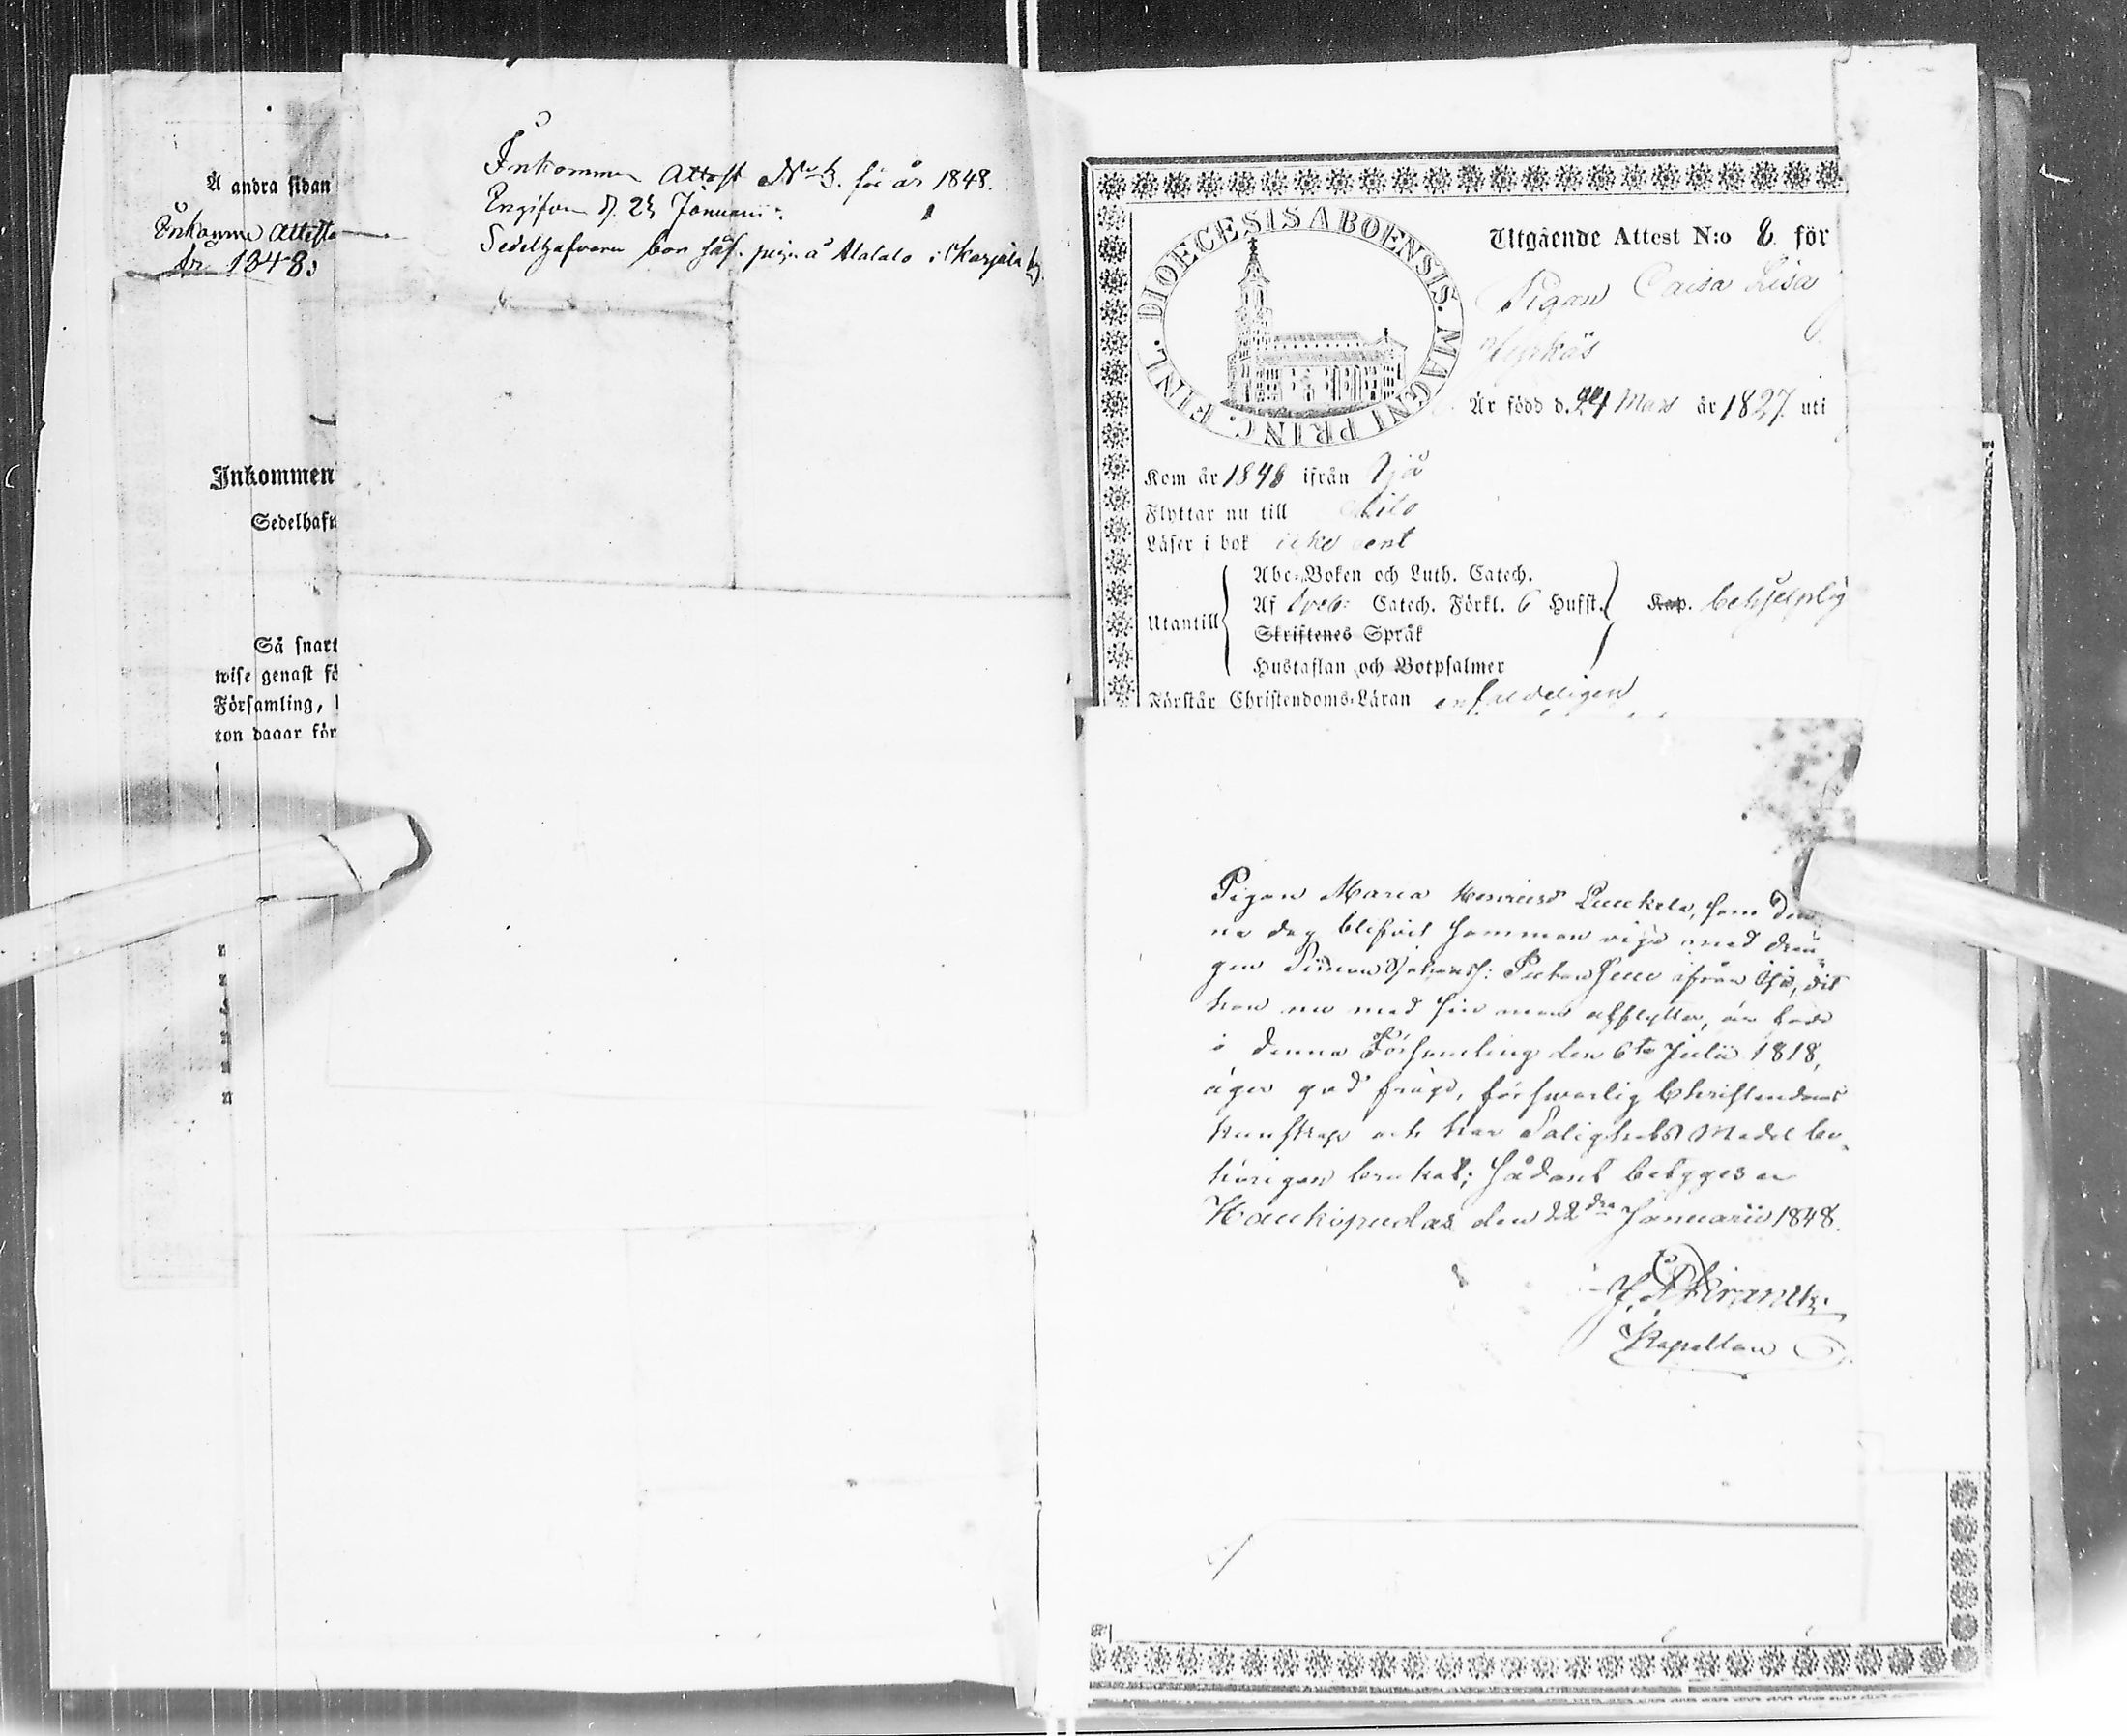 Å andra sidan
Inkomne Attesta
år 1848.
Inkommen
Sedelhafv
Så snart
wise genast fö
Församling,
ton dagar för
Inkommen Attest No 3. för år 1848.
Ingifven d. 23 Januarii.
Sedelhafvaren bor såf. piga å Alatalo i Karjala by.
DIOECESIS ABOENSIS. MAGNI PRINC. FINL.
Utgående Attest N:o 8 för
Pigan Caisa Lisa
Är född d. 24 Mars år 1827. uti
Kom år 1846 ifrån Ijo
Flyttar nu till
Läser i bok icke rent
Utantill
Abc-Boken och Luth. Catech.
Af Sveb: Catech. Förkl. 6 Hufst. Kap. behjelplig
Skriftenes Språk
Hustaflan och Botpsalmer
Förstår Christendoms-Läran enfaldeligen
Pigan Maria Henricsd Luukela, som den
na dag blifvit samman vigd med drän
gen Simon Johanss: ifrån Ijo, dit
hon nu med sin man afflyttar, är född
i denna Församling den 6te Julii 1818,
äger god frägd, försvarlig Christendoms
kunskap och har Salighets Medel be
hörigen brukat; sådant betygges
Haukipudas den 22dra Januarii 1848.
Kapellan